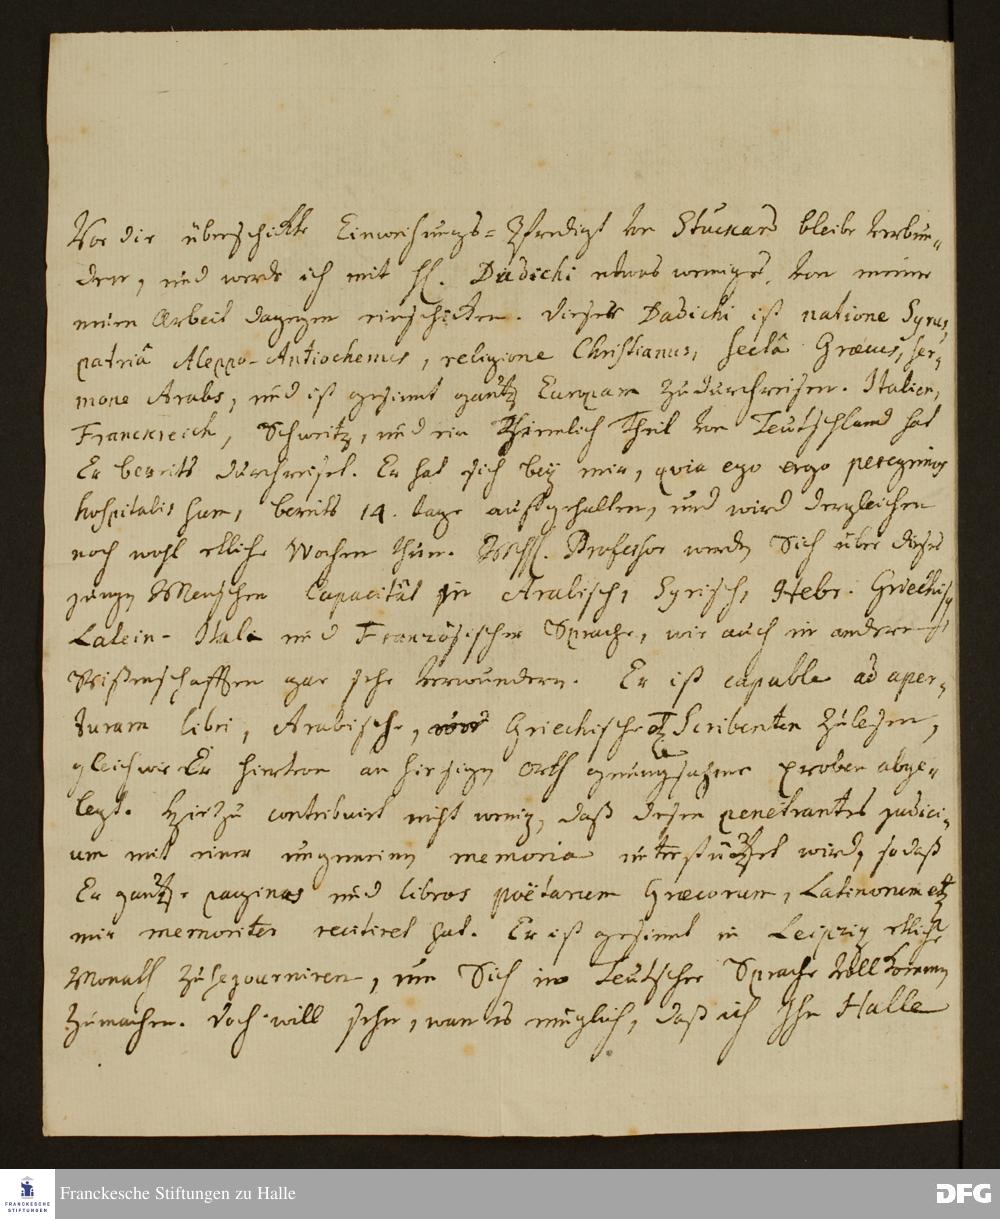 Vor die überschickte Einweihungs-Predigt von Stuckard bleibe verbun-
den, und werde ich mit H. Dadichi etwas weniges von meiner
neuen Arbeit dagegen einschicken. Dieser Dadichi ist natione Syrus,
patriâ Aleppo-Antiochenus, religione Christianus, sectâ Græcus, ser-
mone Arabs, und ist gesinnt gantz Europam zudurchreisen. Italien,
Franckreich, Schweitz, und ein Zimlich Theil von Teutschland hat
Er bereits durchreiset. Er hat sich beÿ mir, qvia ego erga peregrinos
hospitalis sum, bereits 14. tage auffgehalten, und wird dergleichen
noch wohl etliche Wochen thun. Professor werden Sich über dieses
jungen Menschen Capacität in Arabisch, Syrisch, Hebr. Griechisch
Latein- Ital. und Französischer Sprache, wie auch in andern
Wißenschafften gar sehr verwundern. Er ist capable ad aper-
turam libri, Arabische, Griechische et Scribenten zulesen,
gleich wie Er hiervon an hiesigen Orth gnungsahme proben abge-
legt. Hierzu contribuirt nicht wenig, daß deßen penetrantes judici-
um mit einer ungemeinen memoria unterstützet wird, so daß
Er gantze paginas und libros poëtarum Græcorum, Latinorum etc
mir memoriter recitiret hat. Er ist gesinnt in Leipzig etliche
Monath zu sejourniren, um Sich in Teutscher Sprache vollkommen
zumachen. Doch will sehn, wan es müglich, daß ich Ihn Halle
Franckesche Stiftungen zu Halle
FRANCKESCHE
STIFTUNGEN
DFG